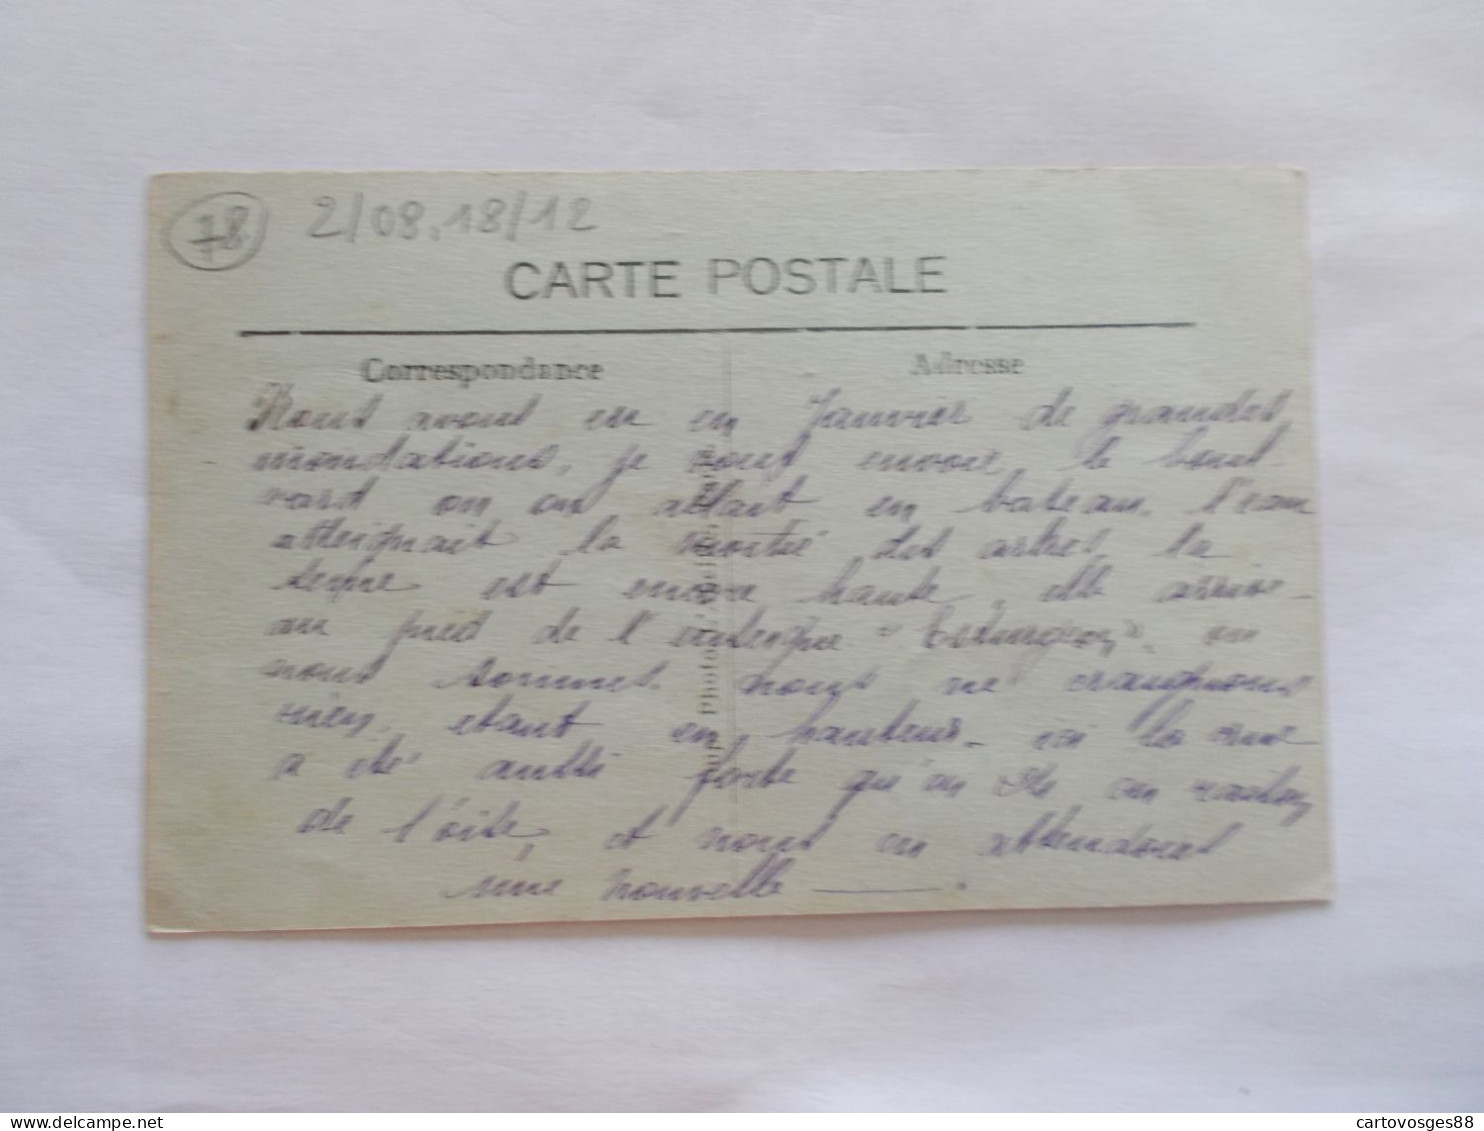 78 2/08.18/12
CARTE POSTALE
Correspondance Adresse
Nous avons eu en Janvier de grandes
inondations, je vous envoie le boul-
vard où on allait en bateau. l'eau
atteignait la moitié des arbres, la
seine est encore haute, elle arrive
au pied de l'enseigne "Esturgeon", où
nous sommes nous ne craignons
rien, étant en hauteur. ici la crue
a été aussi forte qu' en
de l'oise, et nous en attendons
une nouvelle.
Photo
cartovosges88